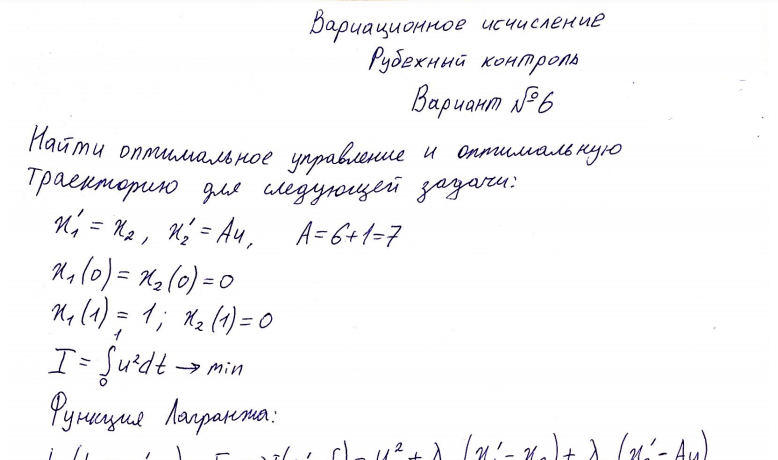 Вариационное исчисление
Рубежный контроль
Вариант №6
Найти оптимальное управление и оптимальную
траекторию для следующей задачи:
x₁' = x₂, x₂' = Au, A=6+1=7
x₁(0) = x₂(0)=0
x₁(1) = 1; x₂(1)=0
I = ∫₀¹ u²dt → min
Функция Лагранжа: